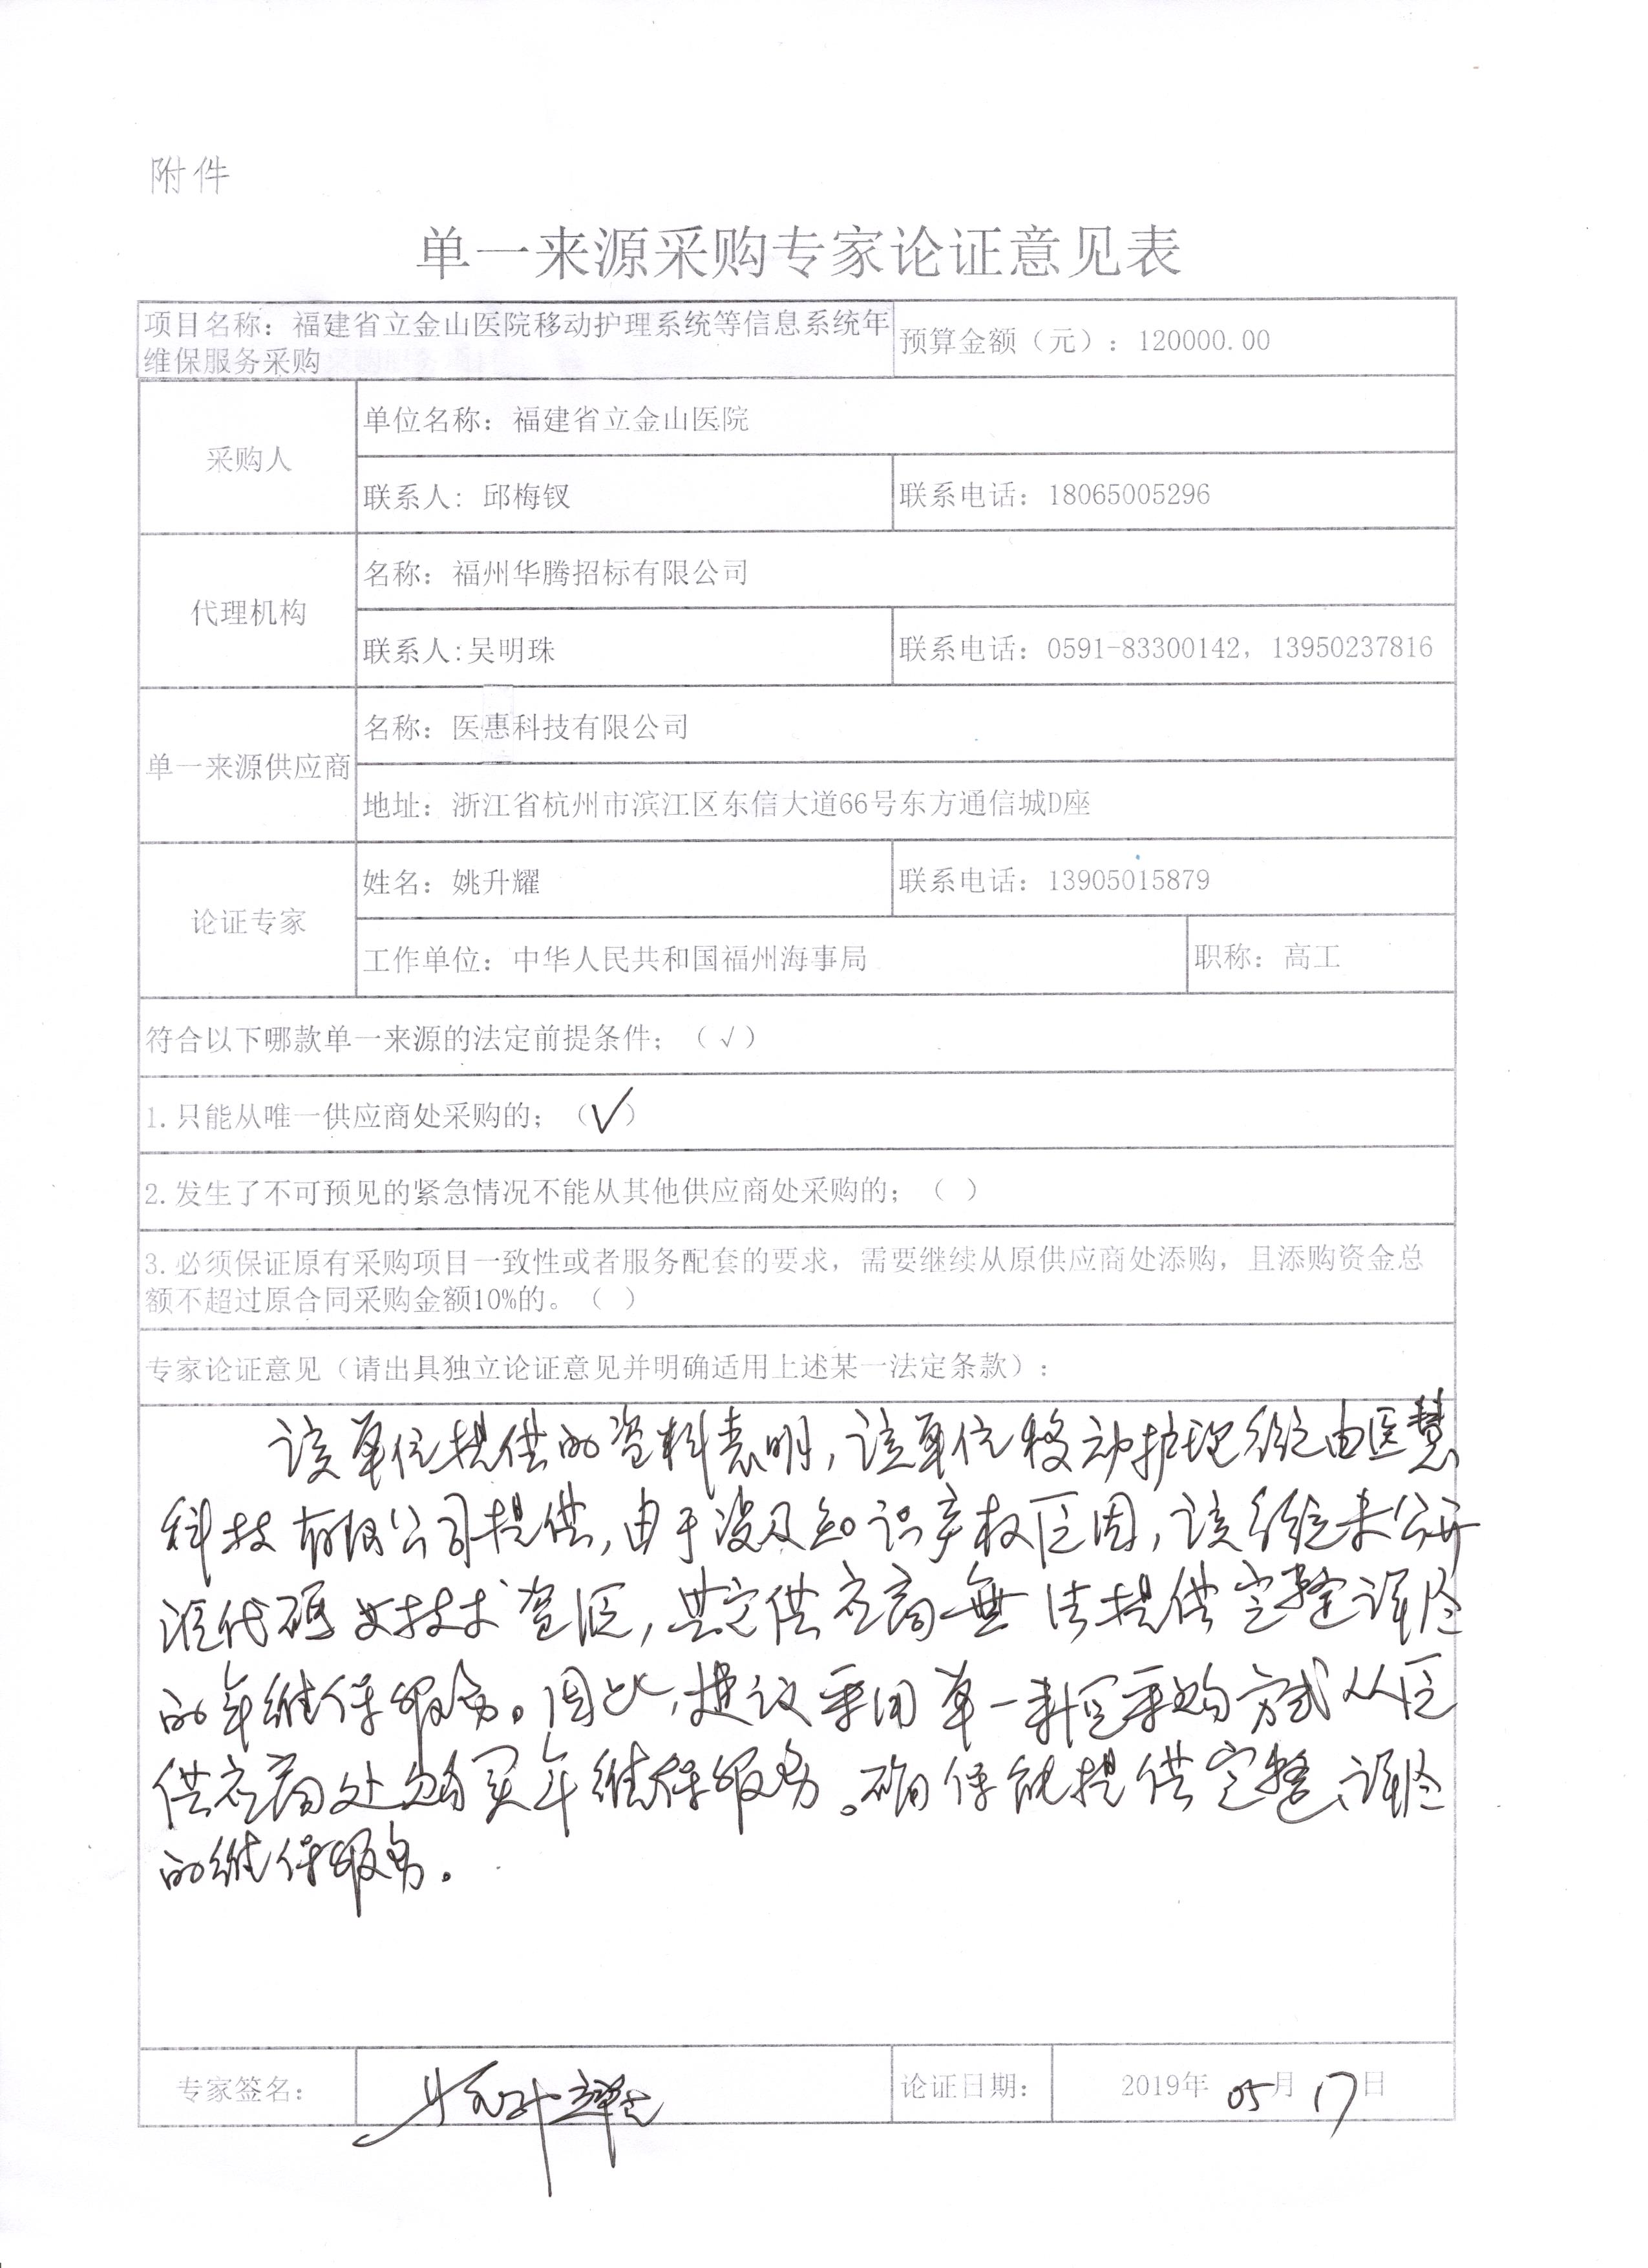 附件
单一来源采购专家论证意见表
项目名称：福建省立金山医院移动护理系统等信息系统年
维保服务采购
预算金额（元）：120000.00
采购人
单位名称：福建省立金山医院
联系人：邱梅钗
联系电话：18065005296
代理机构
名称：福州华腾招标有限公司
联系人:吴明珠
联系电话：0591-83300142，13950237816
单一来源供应商
名称：医惠科技有限公司
地址：浙江省杭州市滨江区东信大道66号东方通信城D座
论证专家
姓名：姚升耀
联系电话：13905015879
工作单位：中华人民共和国福州海事局
职称：高工
符合以下哪款单一来源的法定前提条件；（√）
1.只能从唯一供应商处采购的；（✓）
2.发生了不可预见的紧急情况不能从其他供应商处采购的；（ ）
3.必须保证原有采购项目一致性或者服务配套的要求，需要继续从原供应商处添购，且添购资金总
额不超过原合同采购金额10%的。（ ）
专家论证意见（请出具独立论证意见并明确适用上述某一法定条款）：
该单位提供的资料表明，该单位移动护理系统由医慧
科技有限公司提供，由于涉及知识产权原因，该系统未公开
源代码及技术资源，其它供应商無法提供完整详尽
的年维保服务。因此，建议采用单一来源采购方式从原
供应商处购买年维保服务。确保能提供完整、详尽
的维保服务。
专家签名：
姚升耀
论证日期：
2019年 05月 17日